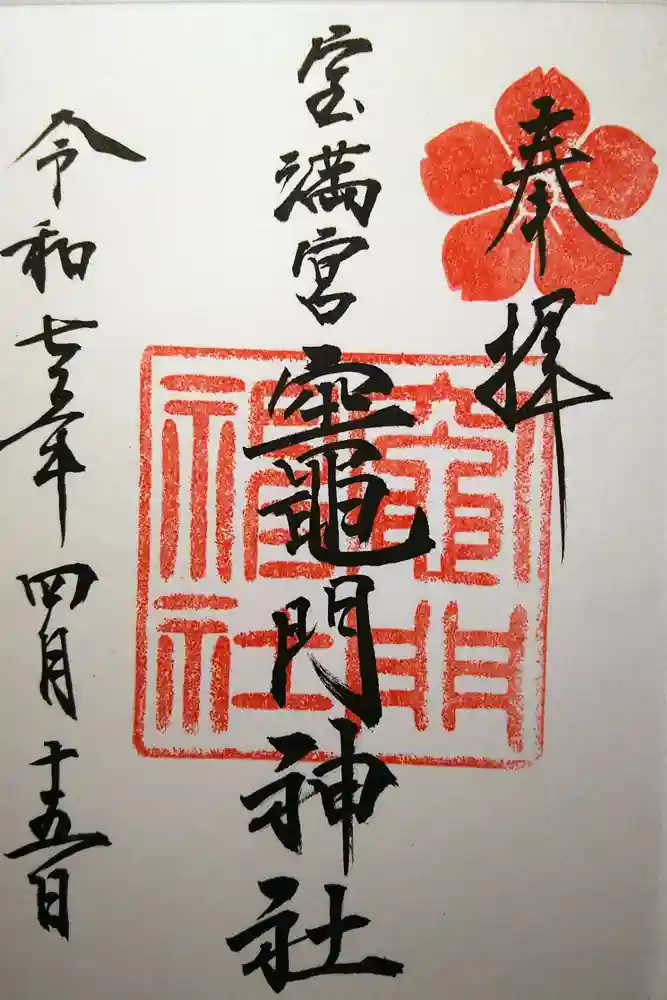 奉拝
宝満宮
竈門神社
竈門
神社
令和七年四月十五日